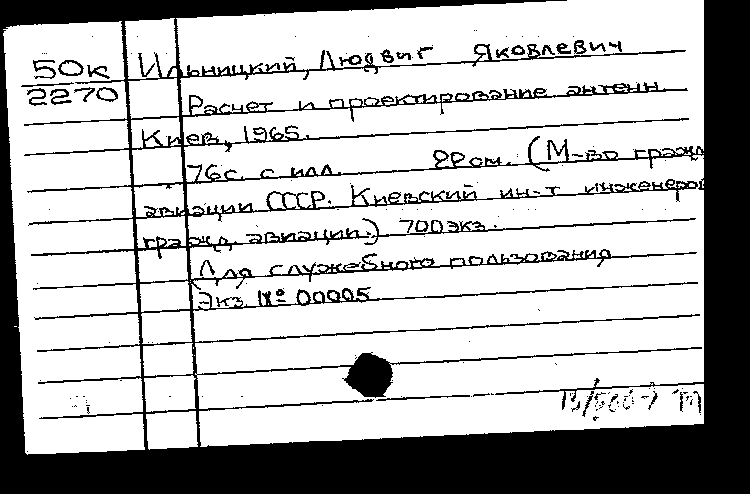 50к
2270
Ильницкий, Людвиг Яковлевич
Расчет и проектирование антенн.
Киев, 1965.
76с. с илл. 22см. (М-во гражд
авиации СССР. Киевский ин-т инженеров
гражд. авиации.) 700экз.
Для служебного пользования
Экз № 00005